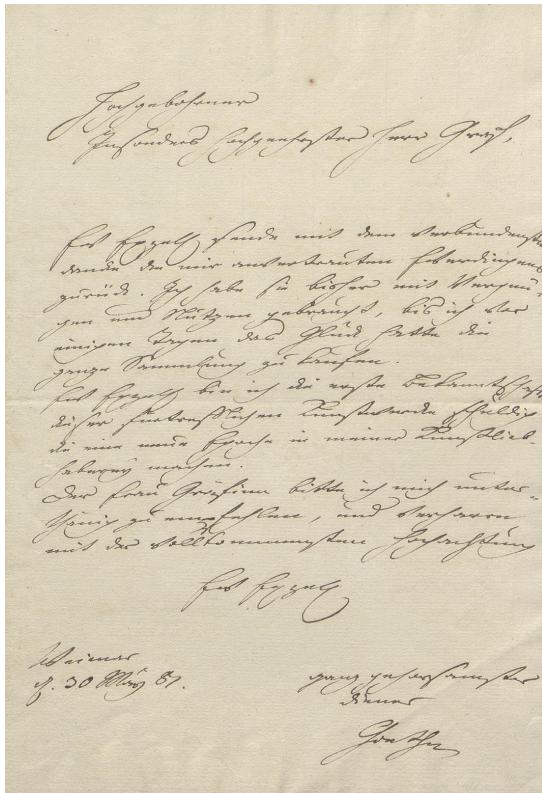 Hochgebohrner
Insonders Hochgeehrtester Herr Graf,
Ew Exzell sende mit dem verbundensten
Dancke die mir anvertrauten Everdingens
zurück. Ich habe sie bisher mit Vergnü-
gen und Nutzen gebraucht, bis ich vor
einigen Tagen das Glück hatte die
ganze Sammlung zu kaufen.
Ew Exzell bin ich die erste Bekanntschafft
dieser fürtrefflichen Kunstwercke schuldig
die eine neue Epoche in meiner Kunstlieb-
haberey machen.
Der Frau Gräfinn bitte ich mich unter-
thänig zu empfehlen, und verharre
mit der vollkommensten Hochachtung
Ew Exzell
Weimar
d. 30 März 81.
ganz gehorsamster
Diener
Goethe